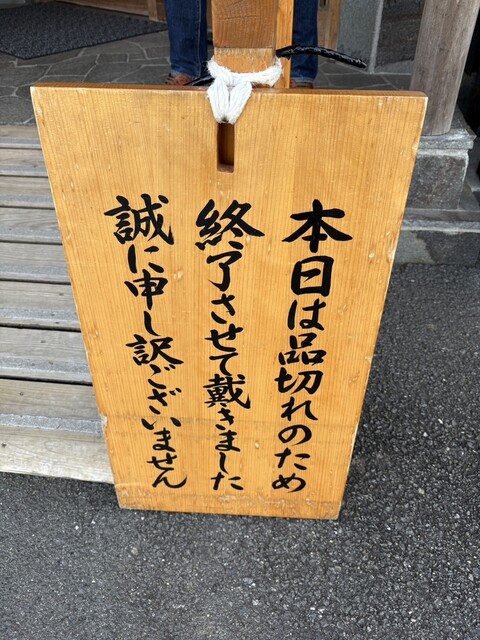 本日は品切れのため
終了させて戴きました
誠に申し訳ございません